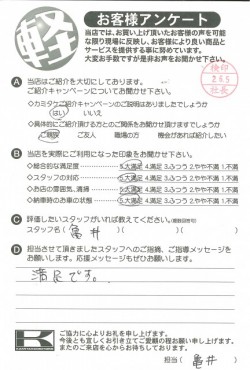 軽
お客様アンケート
当店では、お買い上げ頂いたお客様の声を可能
な限り現場に反映し、お客様により良い商品と
サービスを提供する事に努めています。
大変お手数ですが是非お声をお聞かせ下さい。
検印
2.6.5
社長
A 当店はご紹介を大切にしております。
ご紹介キャンペーンについてお聞かせ下さい。
◇カミタケご紹介キャンペーンのご説明はありましたでしょうか
はい いいえ
◇具体的にご紹介頂ける方とのご関係をお聞かせ頂けますでしょうか
ご親族 ご友人 職場の方 機会があれば紹介したい
B 当店を実際にご利用になった印象をお聞かせ下さい。
◇総合的な満足度 5.大満足 4.満足 3.ふつう 2.やや不満 1.不満
◇スタッフの対応 5.大満足 4.満足 3.ふつう 2.やや不満 1.不満
◇お店の雰囲気、清掃 5.大満足 4.満足 3.ふつう 2.やや不満 1.不満
◇納車時のお車の状態 5.大満足 4.満足 3.ふつう 2.やや不満 1.不満
C 評価したいスタッフがいれば教えてください。(複数回答可)
スタッフ名( 亀井 )( )( )
D 担当させて頂きましたスタッフへのご指摘、ご指導メッセージを
お願いします。応援メッセージもぜひお願いします。
満足です。
K
ご協力に心よりお礼を申し上げます。
今後とも宜しくお引き立てご愛顧の程お願い申し上げます。
またのご来店を心からお待ちしております。
担当( 亀井 )